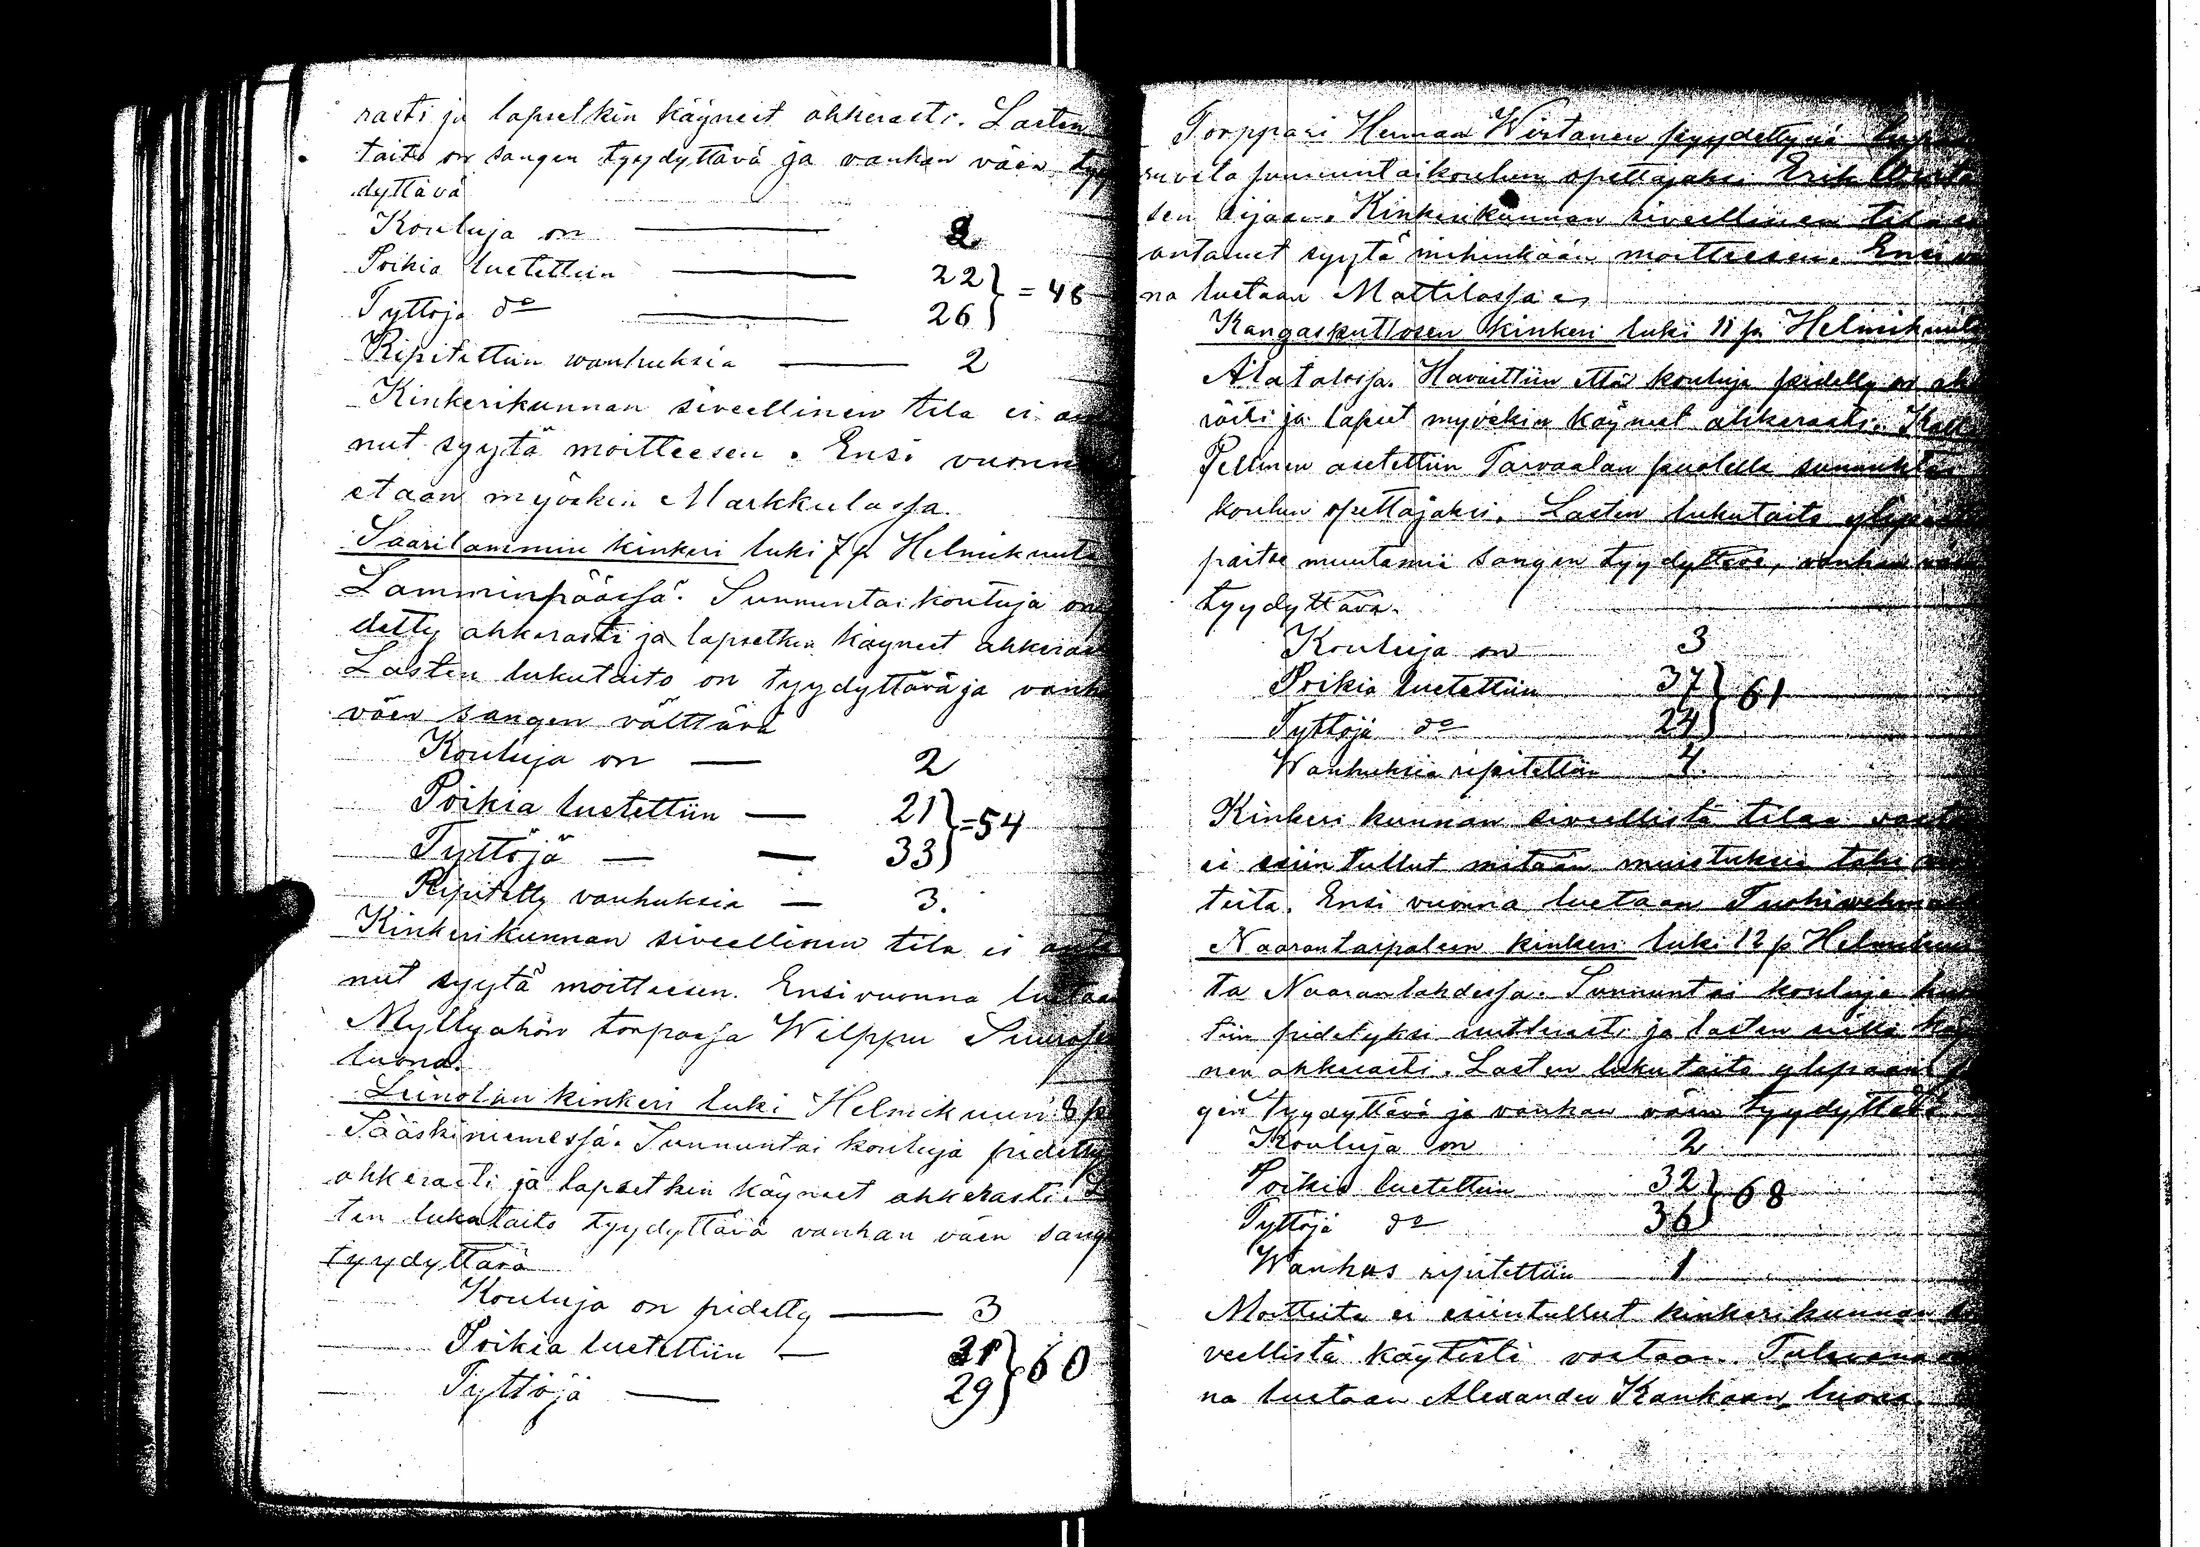 rasti ja lapsetkin käyneet ahkerasti. Lasten
taito on sangen tyydyttävä ja vanhan väen tyy
dyttävä
Kouluja on 2
Poikia luetettiin 22
Tyttöjä do 26 } = 48
Ripitettiin wanhuksia 2
Kinkerikunnan siveellinen tila ei an
nut syytä moitteesen. Ensi vuonn
etaan myöskin Markkulassa.
Saarilammin kinkeri luki 7 p Helmikuuta
Lamminpäässä. Sunnuntai kouluja on
detty ahkerasti ja lapsetkin käyneet ahkeras
Lasten lukutaito on tyydyttävä ja vanh
väen sangen välttävä
Kouluja on 2
Poikia luetettiin 21
Tyttöjä 33 } = 54
Ripitetty vanhuksia 3.
Kinkerikunnan siveellinen tila ei anta
nut syytä moitteesen. Ensivuonna luetaan
Myllyahon torpassa Wilppu
luona.
Leinolan kinkeri luki Helmikuun 8 p
Sääskiniemessä. Sunnuntai kouluja pidetty
ahkerasti ja lapsetkin käyneet ahkerasti. L
ten lukutaito tyydyttävä vanhan väen sang
tyydyttävä
Kouluja on pidetty 3
Poikia luetettiin 31
Tyttöjä 29 } 60
Torppari Herman Wirtanen pyydettynä lupa
ruveta sunnuntaikoulun opettajaksi Erik Wirta
sen sijaan. Kinkerikunnan siveellinen tila ei
antanut syytä mihinkään moitteesen. Ensi vuon
na luetaan Mattilassa
Kangaskutlosen kinkeri luki 11 p Helmikuuta
Alatalossa. Havaittiin että kouluja pidetty on ahk
räsi ja lapset myöskin käyneet ahkerasti. Kall
Pellinen asetettiin Tarvaalan puolelle sunnuntai
koulun opettajaksi. Lasten lukutaito ylipää
paitse muutamia sangen tyydyttävä, vanhan väen
tyydyttävä.
Kouluja on 3
Poikia luetettiin 37
Tyttöjä do 24 } 61
Wanhuksia ripitettiin 4.
Kinkeri kunnan siveellistä tilaa vasta
ei esiin tullut mitään muistuksia tahi
teita. Ensi vuonna luetaan
Naarantaipaleen kinkeri luki 12 p Helmikuu
ta Naaranlahdessa. Sunnuntai kouluja ha
tiin pidetyksi ja lasten niissä käy
nen ahkerasti. Lasten lukutaito ylipään
gen tyydyttävä ja vanhan väen tyydyttävä
Kouluja on 2
Poikia luetettiin 32
Tyttöjä do 36 } 68
Wanhus ripitettiin 1
Moitteita ei esiintullut kinkerikunnan si
veellistä käytöstä vastaan. Tulevana vuon
na luetaan Alexander Kankaan luona.